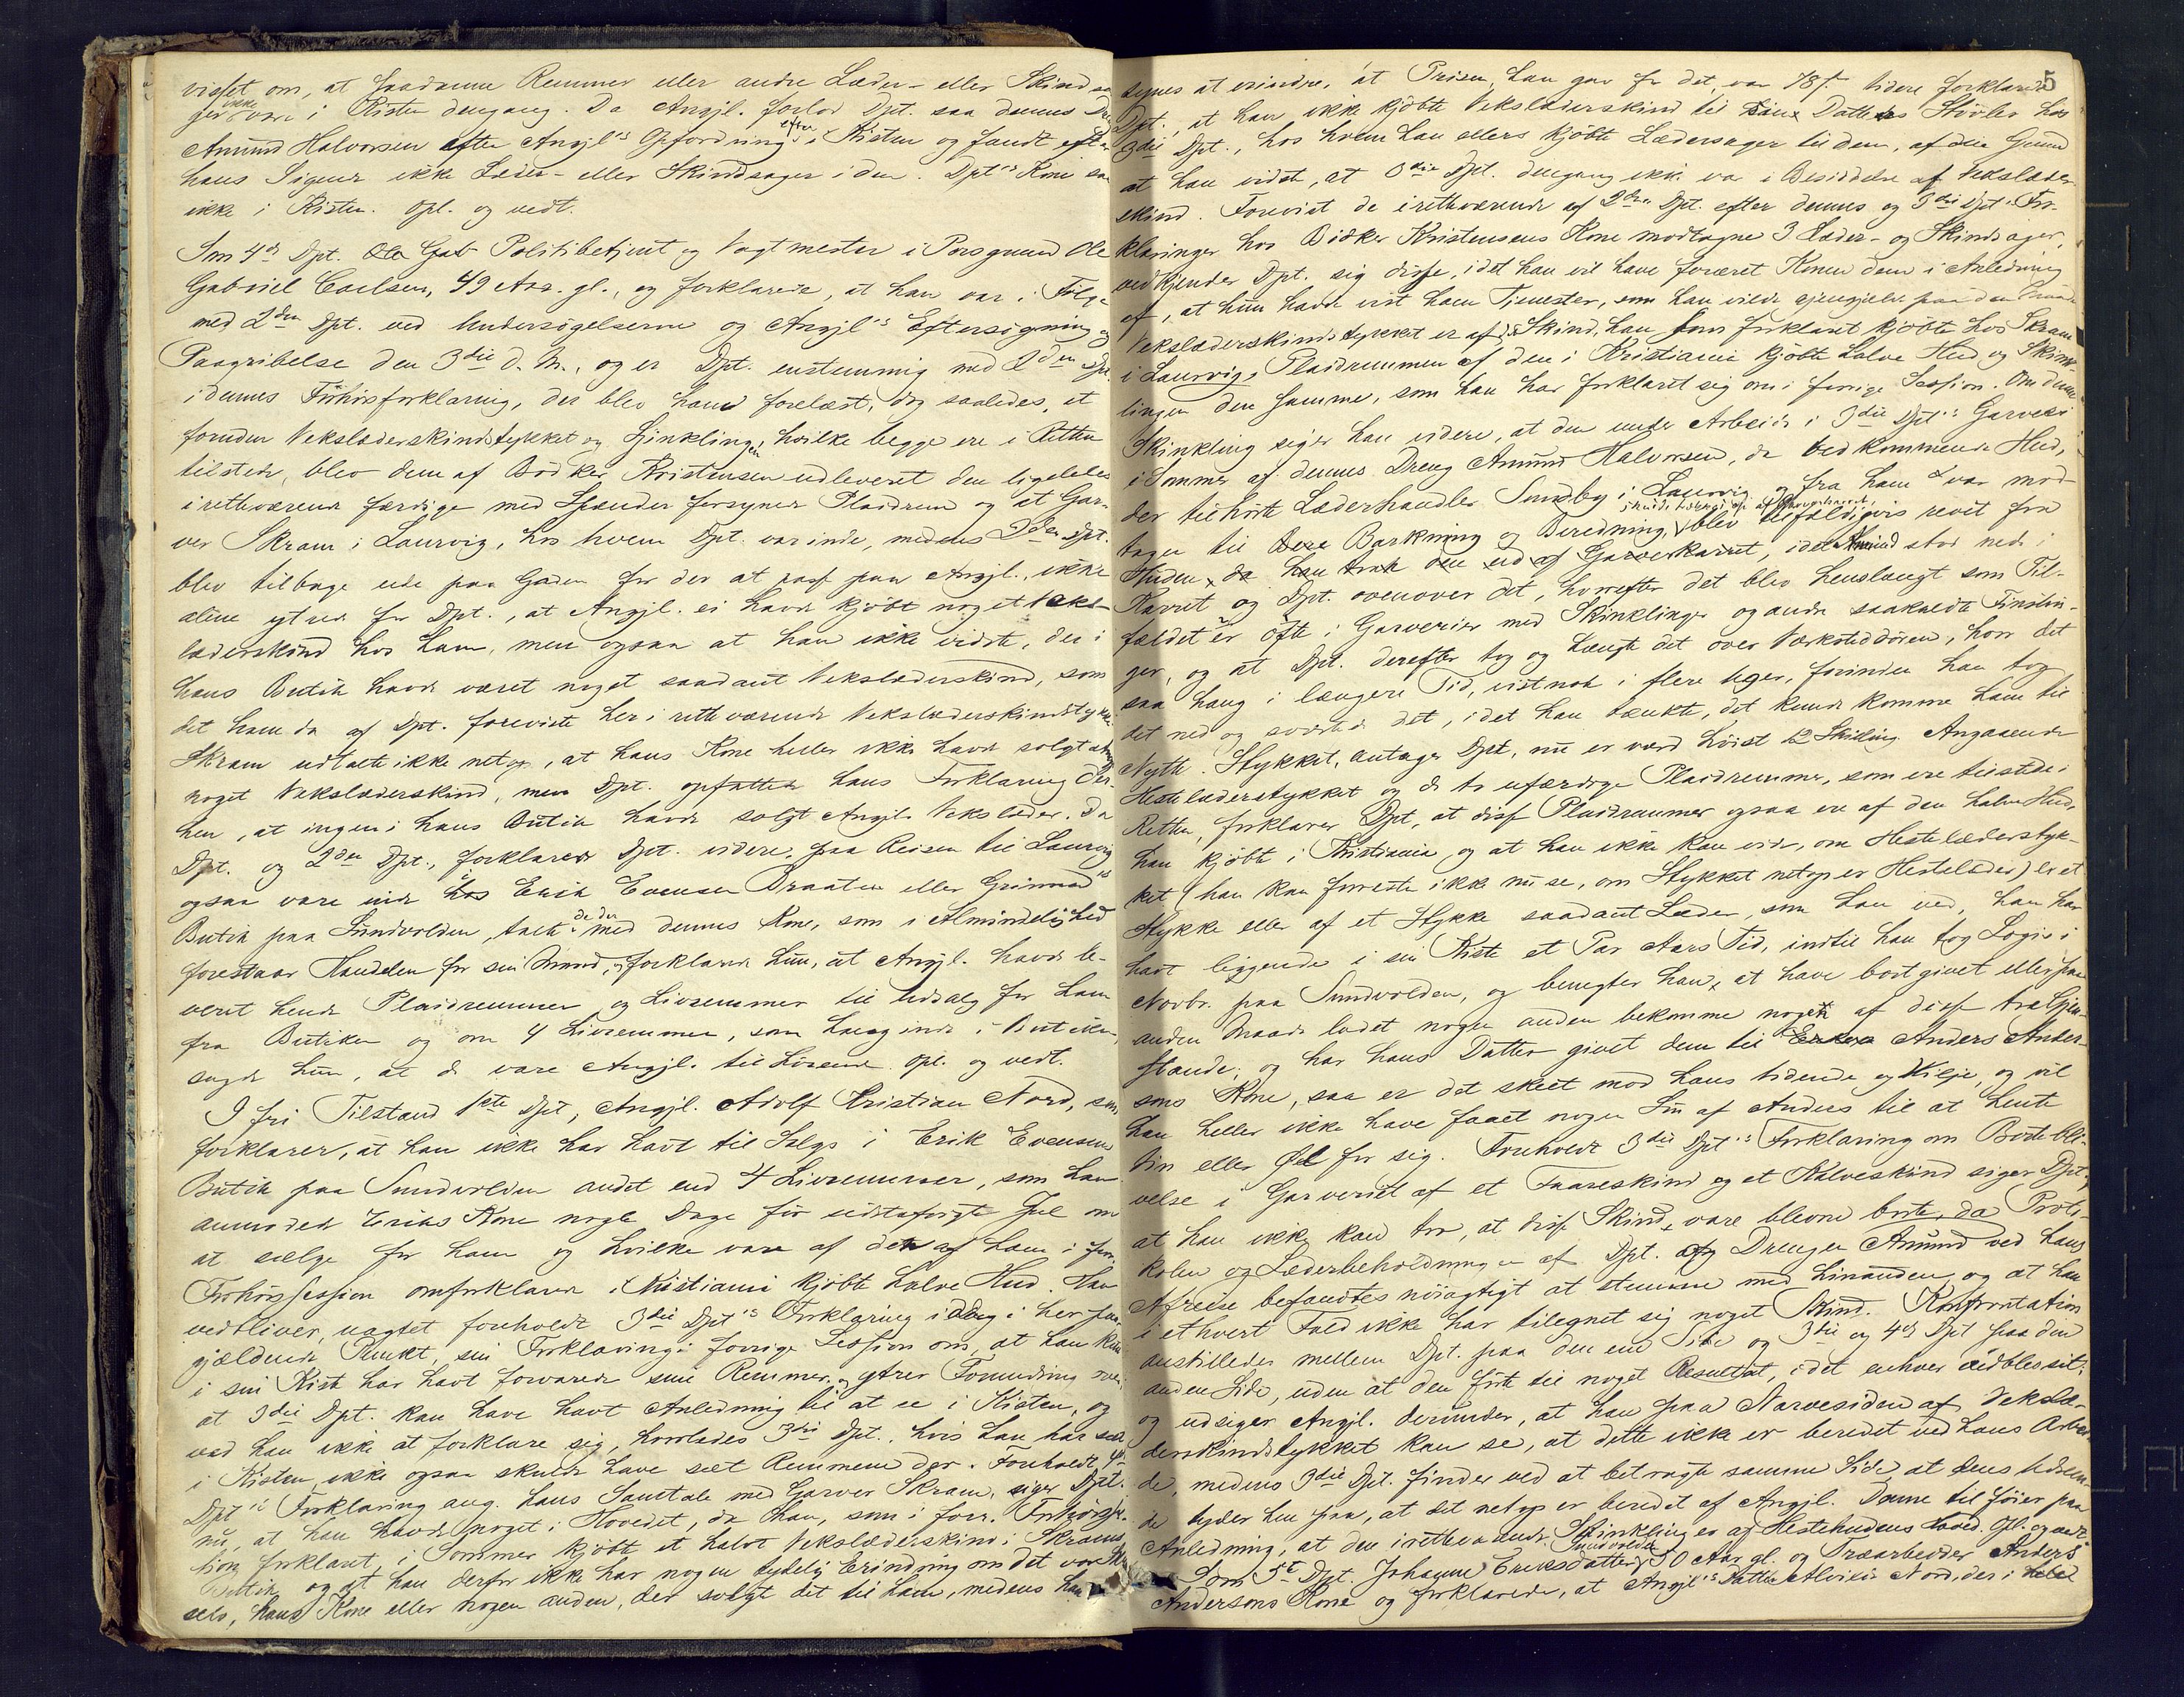 visset om, at saadanne Remmer eller andre Læder- eller Skindsa
ger ikke vare i Kisten dengang. Da Angjl. forlod Dpt. saa dennes Dreng
Amund Halvorsen efter Angjl's Opfordring efter i Kisten og fandt efter
hans Sigende ikke Læder- eller Skindsager i den. Dpt's Kone saa
ikke i Kisten. Opl. og vedt.
Som 4de Dpt. Politibetjent og Vagtmester i Porsgrund Ole
Gabriel Carlsen, 49 Aar gl., og forklarede, at han var i Følge
med 2den Dpt. ved Undersøgelserne og Angjl's Eftersøgning og
Paagribelse den 3die d. M., og er Dpt. enstemmig med 2den Dpt.
i dennes Forhørsforklaring, der blev ham forelæst, dog saaledes, at
foruden Vekslæderskindstykket og Skinklingen, hvilke begge ere i Retten
tilstede, blev dem af Bødker Kristensen udleveret den ligeledes
iretteværende færdige med Spænder forsynede Plaidrem og at Gar-
ver Skram i Laurvig, hos hvem Dpt. var inde, medens 2den Dpt.
blev tilbage ude paa Gaden for der at passe paa Angjl., ikke
alene ytrede for Dpt., at Angjl. ei havde kjøbt noget Veks-
læderskind hos ham, men ogsaa at han ikke vidste, der i
hans Butik havde været noget saadant Vekslæderskind, som
det ham da af Dpt. foreviste her iretteværende Vekslæderskindstykke.
Skram udtalte ikke netop, at hans Kone heller ikke havde solgt
noget Vekslæderskind, men Dpt. opfattede hans Forklaring der-
hen, at ingen i hans Butik havde solgt Angjl. Vekslæder. Da
Dpt. og 2den Dpt., forklarede Dpt. videre, paa Reisen til Laurvig
ogsaa vare inde i Erik Evensen Braaten eller Grimsrud's
Butik paa Sundvolden, talte de der med dennes Kone, som i Almindelighed
forestaar Handelen for sin Mand, og forklarede hun, at Angjl. havde le-
veret hende Plaidremmer og Livremmer til Udsalg for ham
fra Butiken og om 4 Livremmer, som hang inde i Butiken,
sagde hun, at de vare Angjl. tilhørende. Opl. og vedt.
I fri Tilstand 1ste Dpt., Angjl. Adolf Kristian Nord, som
forklarer, at han ikke har havt til Salgs i Erik Evensens
Butik paa Sundvolden andet end 4 Livremmer, som han
anmodede Eriks Kone nogle Dage før sidstafvigte Jul om
at sælge for ham og hvilke vare af den af ham i forr.
Forhørssession omforklarede i Kristiania kjøbte halve Hud. Han
vedbliver, uagtet foreholdt 3die Dpt's Forklaring idag i herhen
gjældende Punkt, sin Forklaring i forrige Session om, at han kun
i sin Kiste har havt forvaret sine Remmer og ytrer Formodning om,
at 3die Dpt. kan have havt Anledning til at se i Kisten, og
ved han ikke at forklare sig, hvorledes 3die Dpt., hvis han har seet
i Kisten, ikke ogsaa skulde have seet Remmene der. Foreholdt 4de
Dpt's Forklaring ang. hans Samtale med Garver Skram, siger Dpt.
nu, at han havde noget i Hovedet, da han, som i forr. Forhørsses-
sion forklaret, i Sommer kjøbte et halvt Vekslæderskind i Skrams
Butik og at han derfor ikke har nogen tydelig Erindring om det var
selv, hans Kone eller nogen anden, der solgte det til ham, medens han
5
synes at erindre, at Prisen, han gav for det, var 78 s. Videre forklarede
Dpt., at han ikke kjøbte Vekslæderskind til sin Datters Støvler hos
3die Dpt., hos hvem han ellers kjøbte Lædersager til dem, af den Grund
at han vidste, at 3die Dpt. dengang ikke var i Besiddelse af Vekslæder-
skind. Forevist de iretteværende af 2den Dpt. efter dennes og 3die Dpt's For-
klaringer hos Bødker Kristensens Kone modtagne 3 Læder- og Skindsager,
vedkjender Dpt. sig disse, idet han vil have foræret Konen dem i Anledning
af, at hun havde vist ham Tjenester, som han vilde gjengjelde paa den Maade.
Vekslæderskindstykket er af det Skind, han som forklaret kjøbte hos Skram
i Laurvig, Plaidremmen af den i Kristiania kjøbte halve Hud og Skink-
lingen den samme, som han har forklaret sig om i forrige Session. Om denne
Skinkling siger han videre, at den under Arbeide i 3die Dpt's Garveri
i Sommer af dennes Dreng Amund Halvorsen, da vedkommende Hud,
der tilhørte Læderhandler Sundby i Laurvig og fra ham var mod-
tagen til Barkning og Beredning, skulde tages op af Garverkarret, blev tilfældigvis revet fra
Huden, da han trak den ud af Garverkarret, idet Amund stod nede i
Karret og Dpt. ovenover det, hvorefter det blev henslængt som Til-
fældet er ofte i Garverier med Skinklinger og andre saakaldte Finstin-
ger, og at Dpt. derefter tog og hængte det over Værksteddøren, hvor det
saa hang i længere Tid, vistnok i flere Uger, førinden han tog
det ned og sværtede det, idet han tænkte, det kunde komme ham til
Nytte. Stykket, antager Dpt., nu er værd høist 12 Skilling. Angaaende
Hestelæderstykket og de to ufærdige Plaidremmer, som ere tilstede i
Retten, forklarer Dpt., at disse Plaidremmer ogsaa ere af den halve Hud,
han kjøbte i Kristiania, og at han ikke kan vide, om Hestelæderstyk-
ket (han kan forresten ikke nu se, om Stykket netop er Hestelæder) er et
Stykke eller af et Stykke saadant Læder, som han ved, han har
havt liggende i sin Kiste et Par Aars Tid, indtil han tog Logis i
Novbr. paa Sundvolden, og benegter han, at have bortgivet eller paa
anden Maade ladet nogen anden bekomme noget af disse tre Gjen-
stande, og har hans Datter givet dem til Anders Ander-
sens Kone, saa er det skeet mod hans Vidende og Vilje, og vil
han heller ikke have faaet nogen Søn af Anders til at hente
Vin eller Øl for sig. Foreholdt 3die Dpt's Forklaring om Bortebli-
velse i Garveriet af et Faareskind og et Kalveskind siger Dpt.,
at han ikke kan tro, at disse Skind vare blevne borte, da Proto-
kolen og Læderbeholdningen af Dpt. og Drengen Amund ved hans
Afreise befandtes nøiagtigt at stemme med hinanden, og at han
i ethvert Fald ikke har tilegnet sig noget Skind. Konfrontation
anstilledes mellem Dpt. paa den ene Side og 3die og 4de Dpt. paa den
anden Side, uden at den førte til noget Resultat, idet enhver vedblev sit,
og udsiger Angjl. derunder, at han paa Narvesiden af Vekslæ-
derskindstykket kan se, at dette ikke er beredet ved hans Arbei-
de, medens 3die Dpt. finder ved at betragte samme Side, at dens Udseen-
de tyder hen paa, at det netop er beredt af Angjl. Denne tilføier paa
Anledning, at den iretteværende Skinkling er af Hestehudens Hoved. Opl. og vedt.
Som 5te Dpt. Johanne Eriksdatter Sundvolden, 50 Aar gl. og Træarbeider Anders
Andersens Kone og forklarede, at Angjl's Datter Alvilde Nord, der i